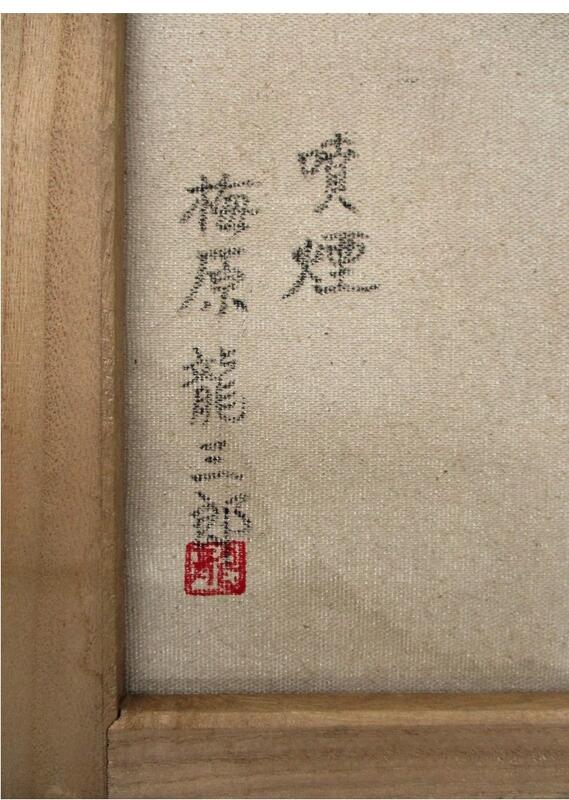 噴煙
梅原龍三郎